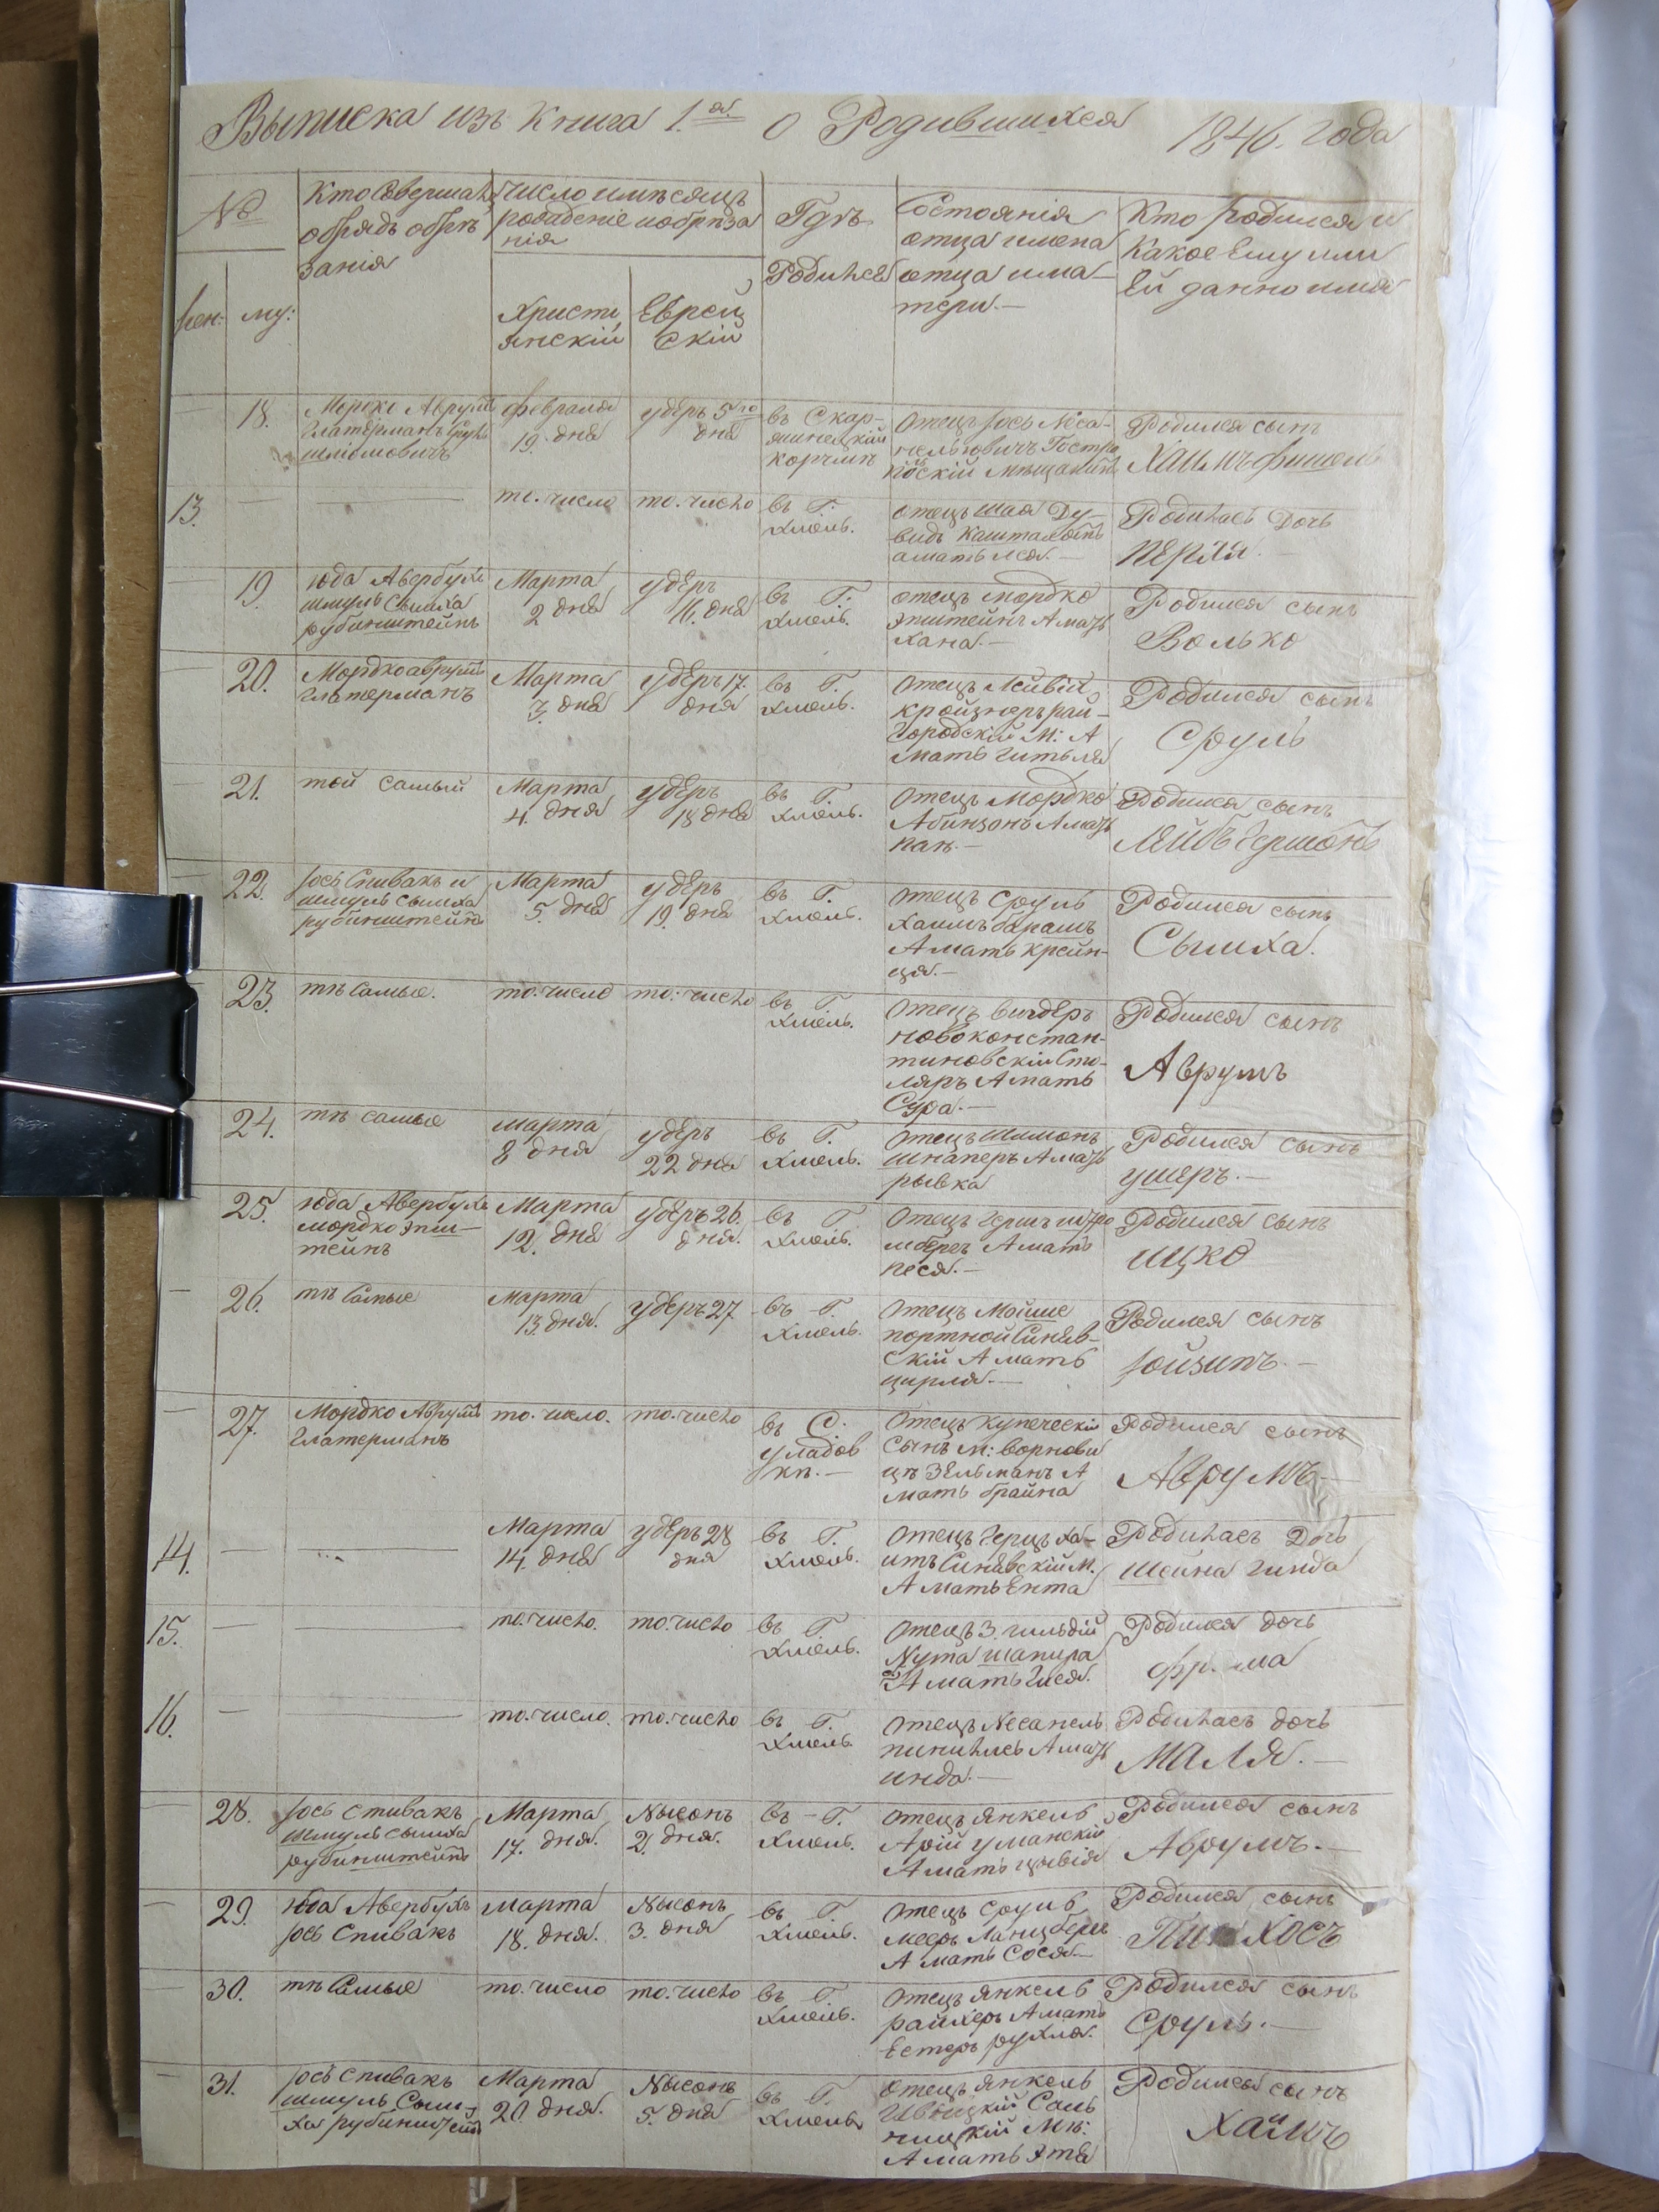 Выписка изъ Книга 1.ая о Родившихся 1846. года
№
жен: му:
Кто Совершалъ
обрядъ обрѣ
занія
Число имѣсяцъ
рождение иобрѣза
нія
Христі
янскій
Еврей
скій
Гдѣ
Родился
Состоянія
отца имена
отца има–
тери.—
Кто родился и
Какое Ему или
Ей данно имя
18.
Мордко Аврумъ
Глатерманъ Сруль
шліомовичъ
февраля
19. дня
удеръ 5го
дня
въ Скар–
жинецкій
корчмѣ
Отецъ Іось Неса–
нельовичъ Гостро
Мѣщанинъ
Родился сынъ
Хаимъ фишель
13.
то. число
то. число
въ Г.
Хмѣль.
отецъ шая Ду–
видъ
амать лея.—
Родилась Дочь
перля.
19.
юда Авербухъ
шмуль Сымха
рубинштейнъ
Марта
2 дня
удеръ
16. дня
въ Г.
Хмѣль.
отецъ мордко
эпштейнъ Амать
хана.—
Родился сынъ
Волько
20.
Мордко аврумъ
глатерманъ
Марта
3. дня
удеръ 17.
дня
въ Г.
Хмѣль.
отецъ Лейвій
кройзнеръ рай–
городскій М: А
мать гитьля
Родился сынъ
Сруль
21.
той самый
Марта
4. дня
удеръ
18 дня
въ Г.
Хмѣль.
Отецъ Мордко
Абинзонъ Амать
Родился сынъ
Лейбъ Гершонъ
22.
Іось Спивакъ и
шмуль сымха
рубинштейнъ
Марта
5. дня
удеръ
19. дня
въ Г.
Хмѣль.
отецъ Сруль
хаимъ барашъ
Амать крейн–
ця.—
Родился сынъ
Сымха.
23.
тѣ самые.
то. число
то. число
въ Г.
Хмѣль.
Отецъ вигдеръ
новоконстан–
тиновскій Сто–
ляръ Амать
Сура.—
Родился сынъ
Аврумъ
24.
тѣ самые
марта
8 дня
удеръ
22 дня
въ Г.
Хмѣль.
Отецъ Шимонъ
шнаперъ Амать
рывка
Родился сынъ
ушеръ.—
25.
юда Авербухъ
мордко эпш–
тейнъ
Марта
12. дня
удеръ 26.
дня.
въ Г.
Хмѣль.
Отецъ гершъ
Амать
песя.—
Родился сынъ
ицко
26.
тѣ самые
Марта
13. дня.
удеръ 27
въ Г.
Хмѣль.
Отецъ Мойше
портной Синяв–
скій А мать
цирля.—
Родился сынъ
Іойзипъ.—
27.
Мордко Аврумъ
глатерманъ
то. число.
то. число
въ С.
уладов
кѣ.—
Отецъ купеческій
сынъ М: ворнови
цѣ Зельманъ А
мать брайна
Родился сынъ
Аврумъ.—
14.
Марта
14. дня
удеръ 28
дня
въ Г.
Хмѣль.
Отецъ герцъ ха–
имъ Синявскій М.
А мать Ента
Родилась Дочь
шейна гинда
15.
то. число.
то. число
въ Г.
Хмѣль.
Отецъ 3. гильдій
Нута шапира
А мать гися.
Родился дочь
16.
то. число.
то. число
въ Г.
Хмѣль.
Отецъ Несанель
Амать
инда.—
Родилась дочь
Маля.—
28.
Іось спивакъ
шмуль сымха
рубинштейнъ
Марта
17. дня.
Нысонъ
2. дня.
въ Г.
Хмѣль.
Отецъ янкель
Арій уманскій
Амать цывія
Родился сынъ
Аврумъ.—
29.
юда Авербухъ
Іось Спивакъ
марта
18. дня.
Нысонъ
3. дня
въ Г.
Хмѣль.
Отецъ сруль
меер Ланцберъ
А мать Сося—
Родился сынъ
Пинхосъ
30.
тѣ самые
то. число
то. число
въ Г.
Хмѣль.
Отецъ янкель
райхеръ Амать
Естеръ рухля.
Родился сынъ
Сруль.—
31.
Іось спивакъ
шмуль Сым–
ха рубинштейнъ
Марта
20. дня.
Нысонъ
5. дня
въ Г.
Хмѣль
Отецъ янкель
Саль
ницкій Мѣ:
А мать Этя
Родился сынъ
Хаимъ